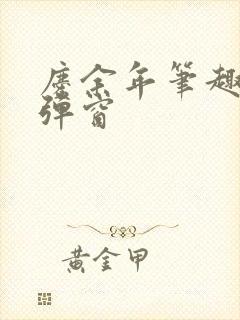 庆余年筆趣
彈窗
黃金甲